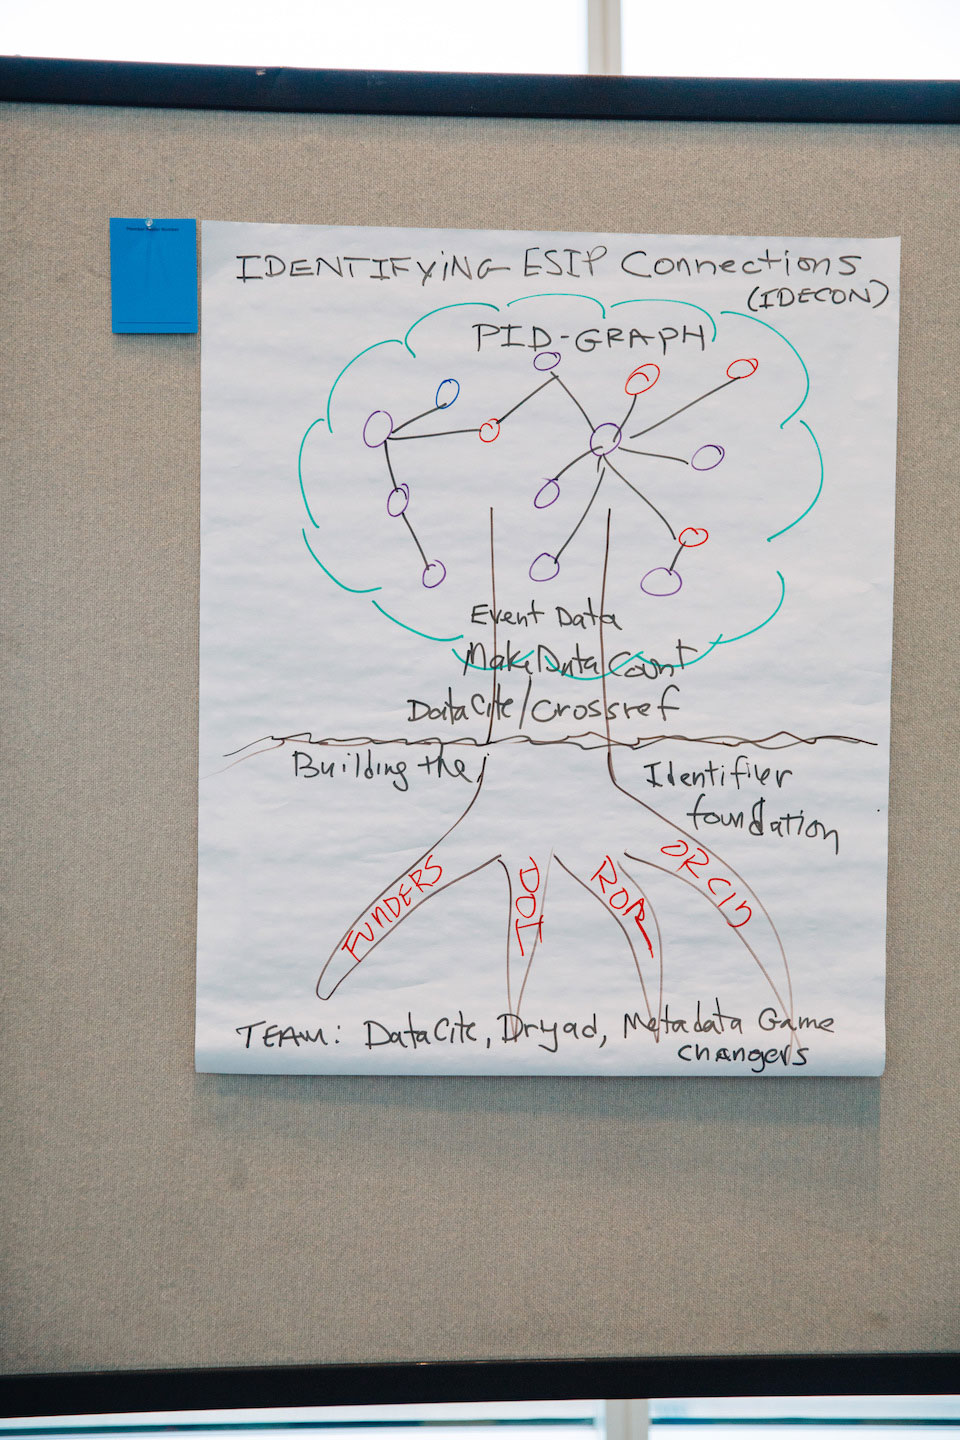 IDENTIFYING ESIP Connections
(IDECON)
PID-GRAPH
Event Data
Make Data Count
DataCite/Crossref
Building the
Identifier
foundation
FUNDERS
DOI
ROR
ORCID
TEAM: DataCite, Dryad, Metadata Game
changers